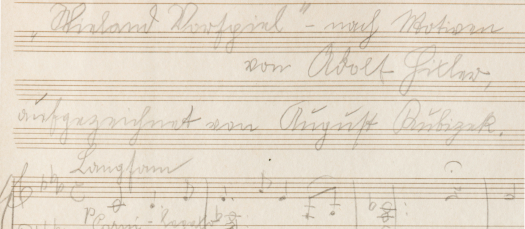 „Wieland Vorspiel" - nach Motiven
von Adolf Hitler,
aufgezeichnet von August Kubizek.
Langsam